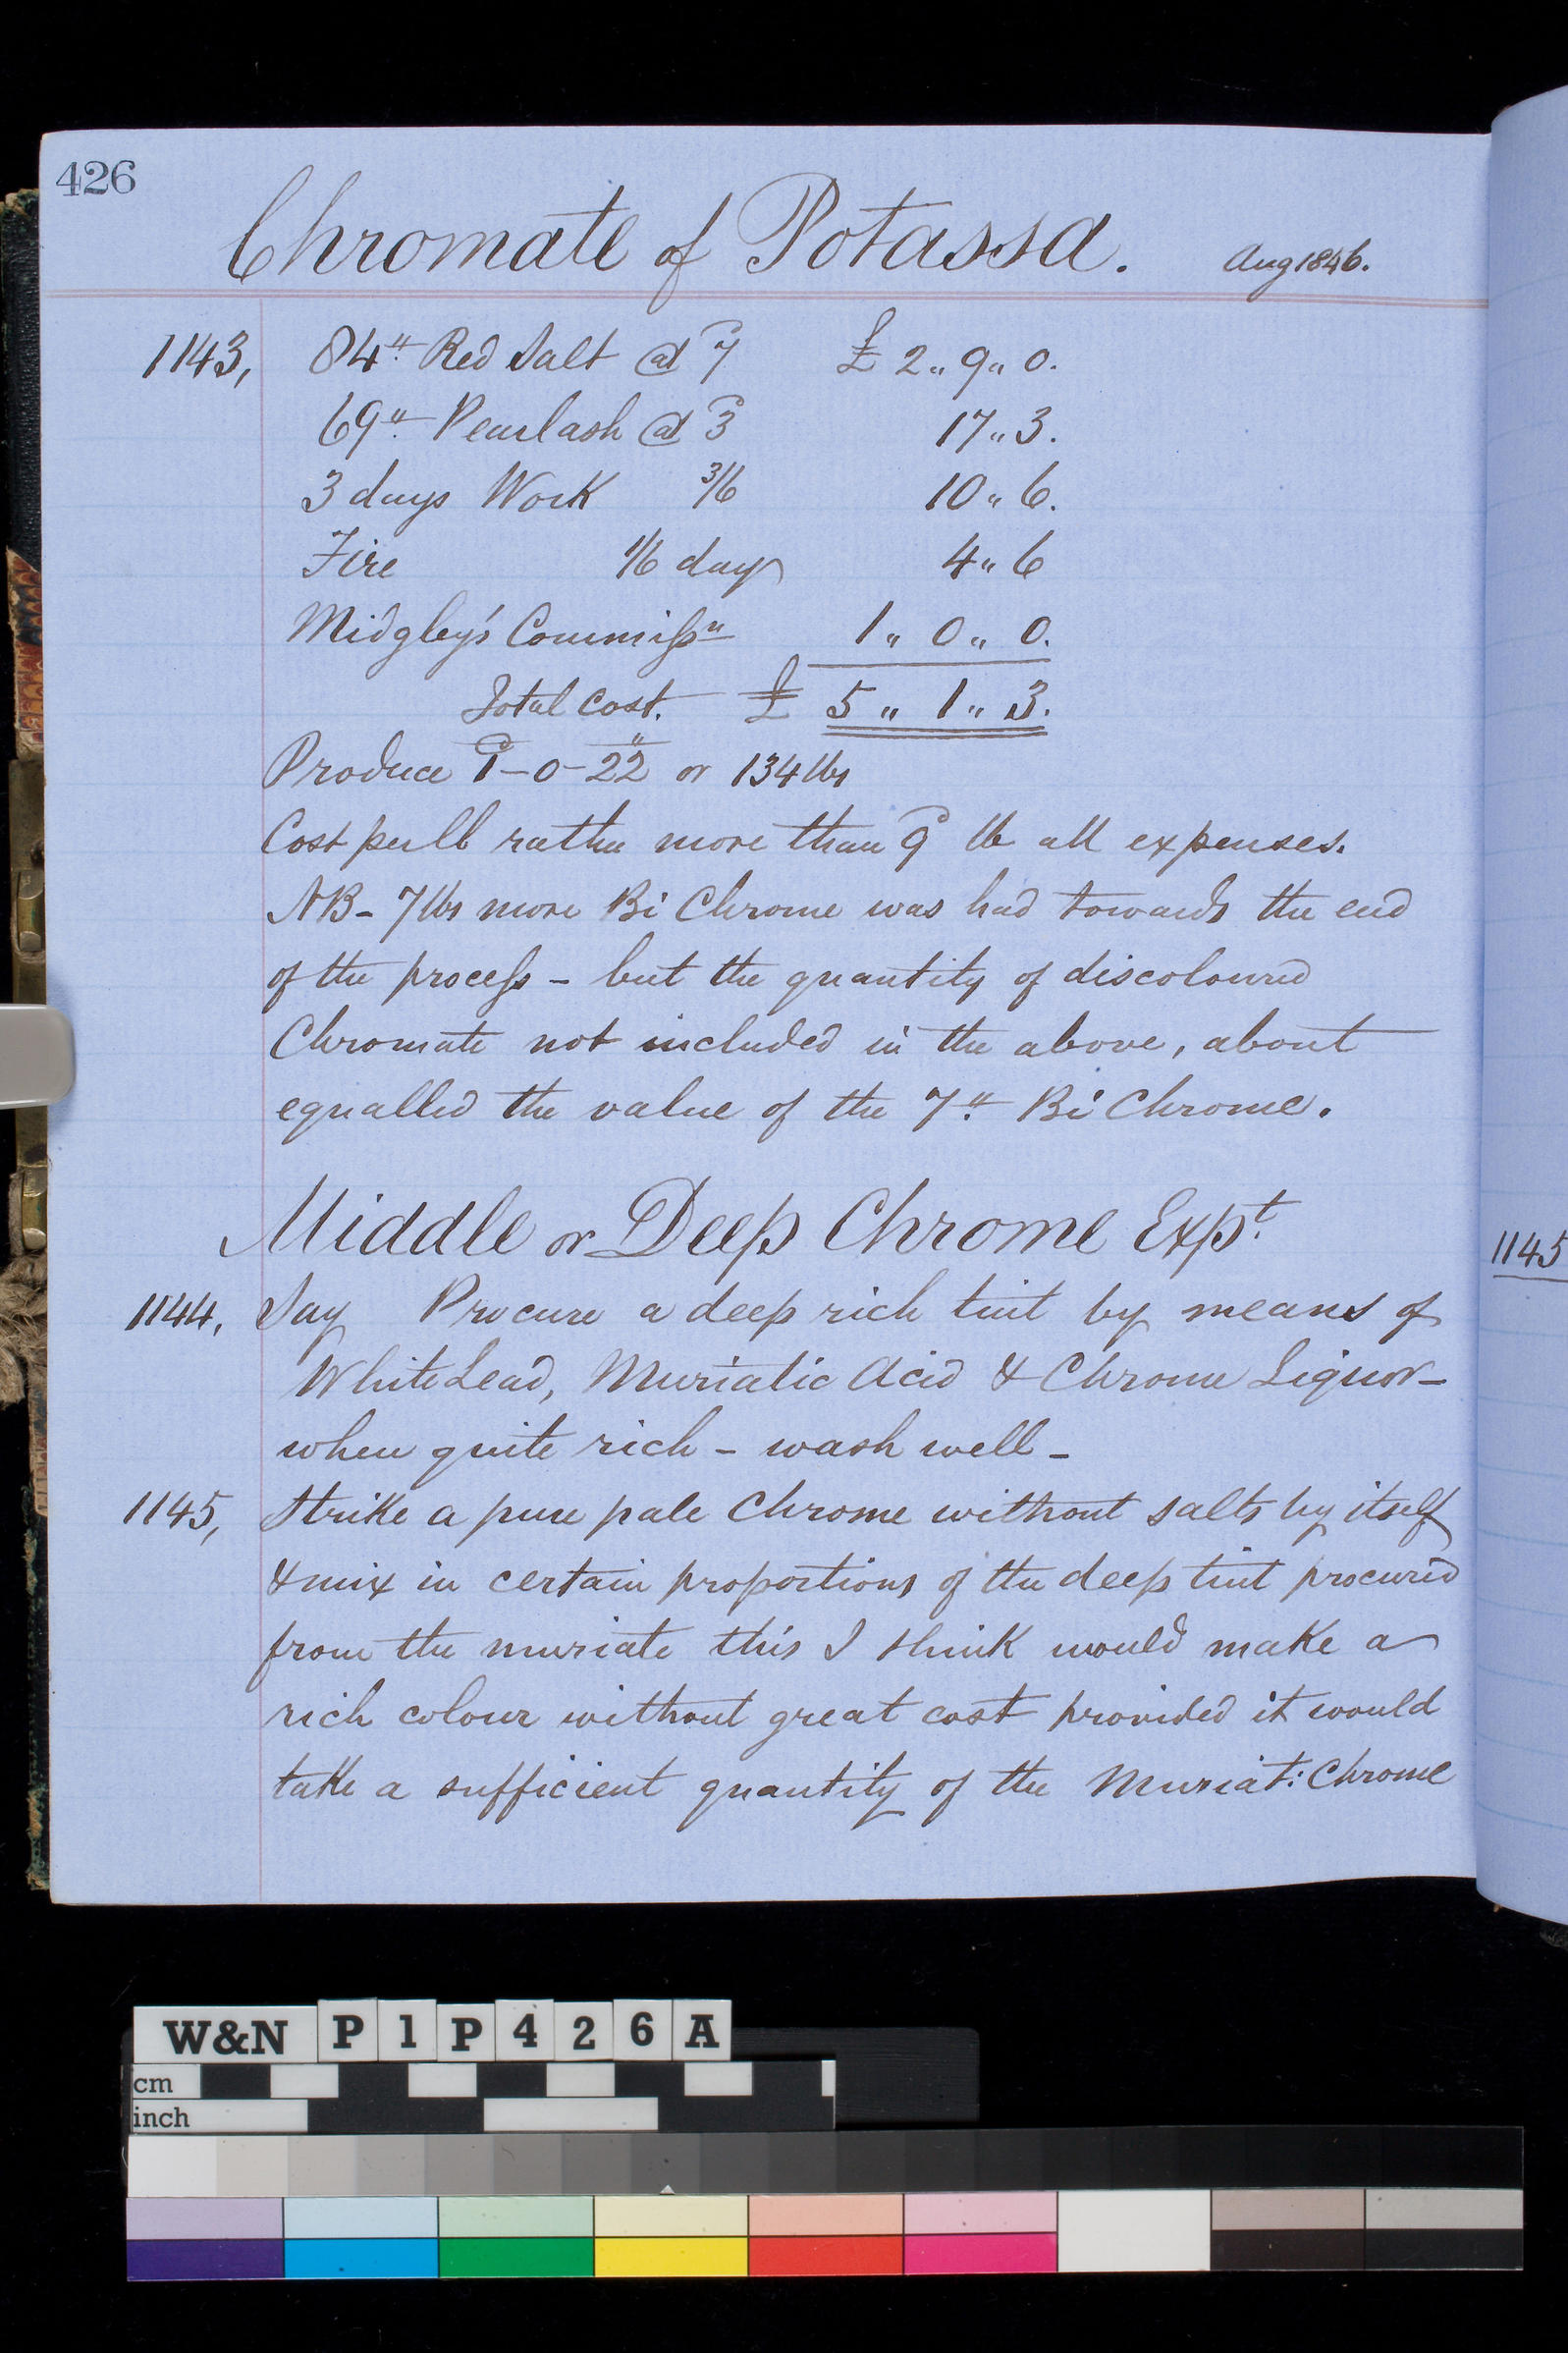 426
Chromate of Potassa. Aug 1846.
1143, 84" Red Salt @ 7 £ 2" 9" 0.
69" Pearlash @ 3 17" 3.
3 days Work 3/6 10" 6.
Fire 1/6 day 4" 6
Midgley's Commissn 1" 0" 0.
Total Cost. £ 5" 1" 3.
Produce 1-0-22 or 134 lbs
Cost per lb rather more than 9 lb all expenses.
NB- 7 lbs more Bi Chrome was had towards the end
of the process - but the quantity of discoloured
Chromate not included in the above, about
equalled the value of the 7" Bi Chrome.
Middle or Deep Chrome Expt.
1144, Say Procure a deep rich tint by means of
White Lead, Muriatic Acid & Chrome Liquor-
when quite rich - wash well -
1145, Strike a pure pale Chrome without salts by itself
& mix in certain proportions of the deep tint procured
from the muriate this I think would make a
rich colour without great cost provided it would
take a sufficient quantity of the Muriat: Chrome
1145
W&N P1P426A
cm
inch